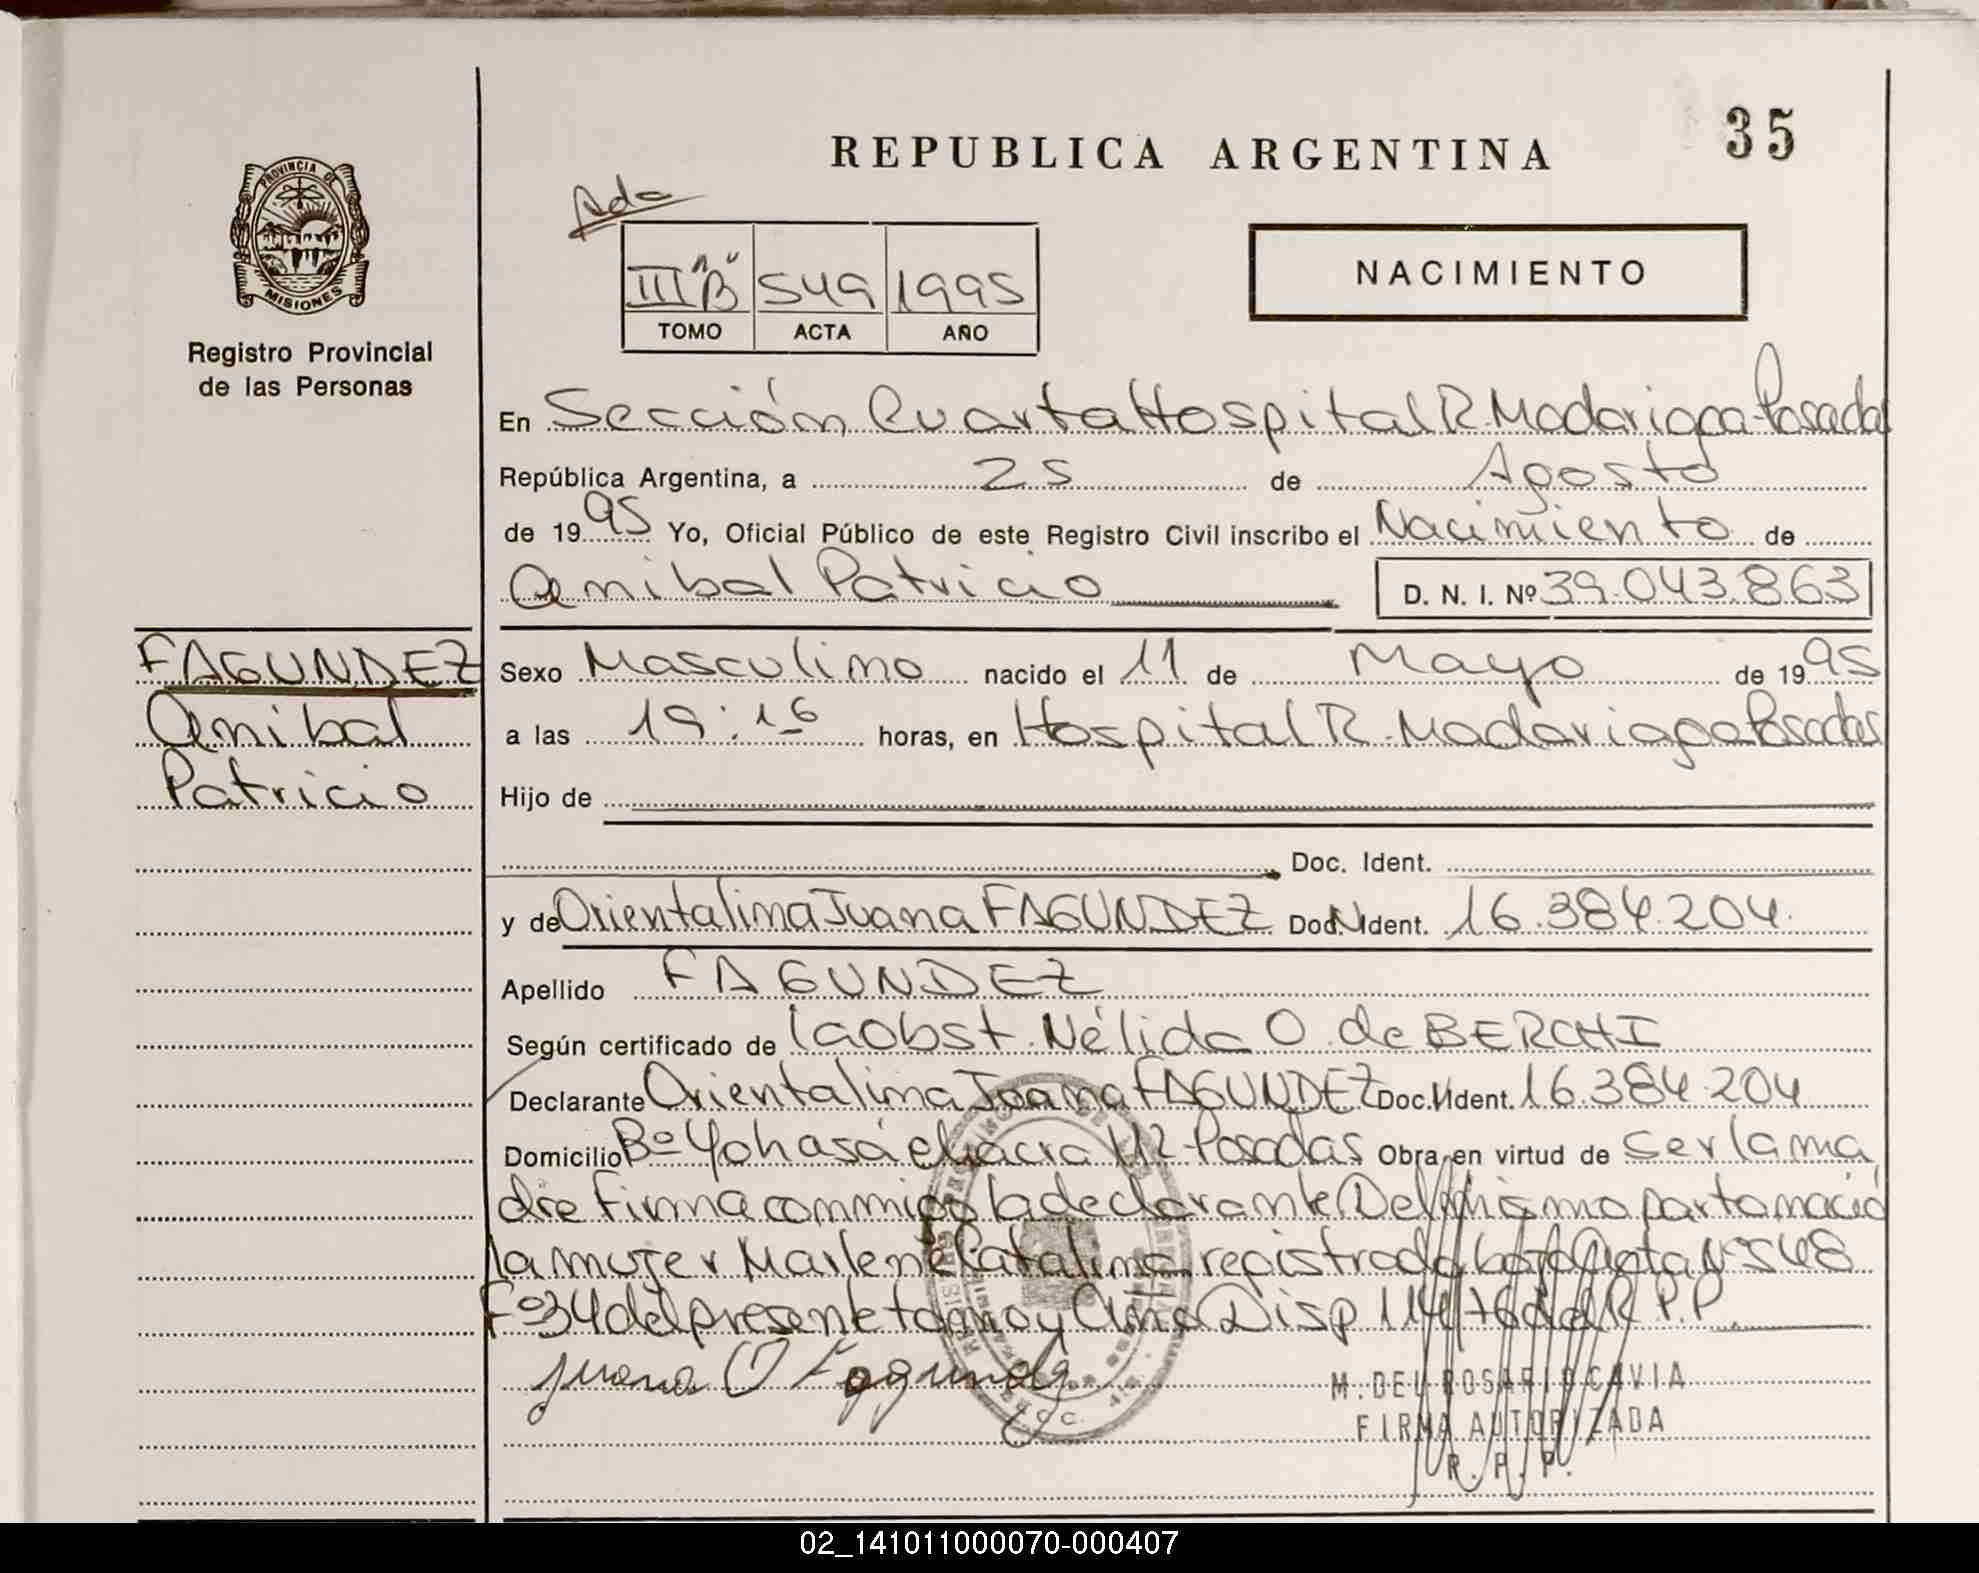 35
REPUBLICA ARGENTINA
PROVINCIA DE
MISIONES
Registro Provincial
de las Personas
Ada
III "B" 549 1995
TOMO ACTA AÑO
NACIMIENTO
En Sección Cuarta Hospital R. Madariaga - Posadas
República Argentina, a 25 de Agosto
de 1995 Yo, Oficial Público de este Registro Civil inscribo el Nacimiento de
Anibal Patricio D. N. I. Nº 39.043.863
FAGUNDEZ
Anibal
Patricio
Sexo Masculino nacido el 11 de Mayo de 1995
a las 19:16 horas, en Hospital R. Madariaga Posadas
Hijo de
Doc. Ident.
y de Orientalina Juana FAGUNDEZ Doc. Ident. 16.384.204
Apellido FAGUNDEZ
Según certificado de la Obst. Nélida O. de BERCHI
Declarante Orientalina Juana FAGUNDEZ Doc. Ident. 16.384.204
Domicilio Bº Yohasá chacra 112 - Posadas Obra en virtud de ser la ma
dre firma conmigo la declarante Del mismo parto nació
la mujer Marlene Catalina registrada bajo Acta Nº 548
Fº 34 del presente tomo y Año Disp 114/76 del R.P.P.
Juana O Fagundez
M. DEL ROSARIO CAVIA
FIRMA AUTORIZADA
R. P. P.
02_141011000070-000407